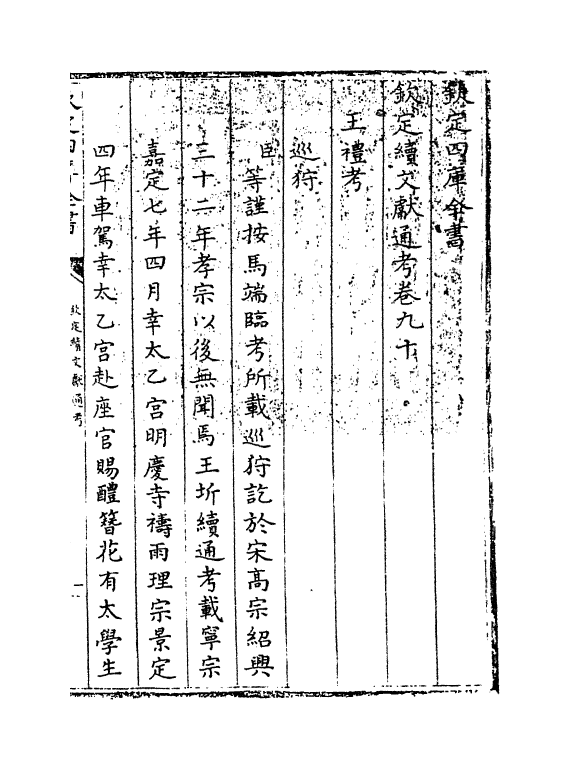 欽定四庫全書
欽定續文獻通考卷九十
王禮考
巡狩
臣等謹按馬端臨考所載巡狩訖於宋高宗紹興
三十二年孝宗以後無聞焉王圻續通考載寧宗
嘉定七年四月幸太乙宮明慶寺禱雨理宗景定
四年車駕幸太乙宮赴座官賜醴簪花有太學生
欽定四庫全書
欽定續文獻通考
一